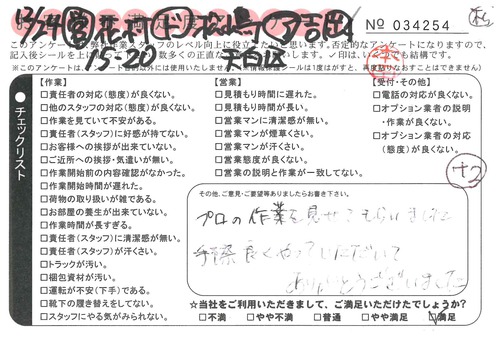 12/24 営 花村 ド 松嶋 ア 吉田
15-20 天白区
No 034254
このアンケートは弊社作業スタッフのレベル向上に役立たせたいと思います。否定的なアンケートになりますので、
数多くの正直な
✓印は、いくつでも結構です。
チェックリスト
【作業】
□責任者の対応(態度)が良くない。
□他のスタッフの対応(態度)が良くない。
□作業を見ていて不安がある。
□責任者(スタッフ)に好感が持てない。
□お客様への挨拶が出来ていない。
□ご近所への挨拶・気遣いが無い。
□作業開始前の内容確認がなかった。
□作業開始時間が遅れた。
□荷物の取り扱いが雑である。
□お部屋の養生が出来ていない。
□作業時間が長すぎる。
□責任者(スタッフ)に清潔感が無い。
□責任者(スタッフ)が汗くさい。
□トラックが汚い。
□梱包資材が汚い。
□運転が不安(下手)である。
□靴下の履き替えをしてない。
□スタッフにやる気がみられない。
【営業】
□見積もり時間に遅れた。
□見積もり時間が長い。
□営業マンに清潔感が無い。
□営業マンが煙草くさい。
□営業マンが汗くさい。
□営業態度が良くない。
□営業の説明と作業が一致してない。
【受付・その他】
□電話の対応が良くない。
□オプション業者の説明
・作業が良くない。
□オプション業者の対応
(態度)が良くない。
+2
その他、ご意見・ご要望等ありましたらお書き下さい。
プロの作業を見せてもらいました
手際良くやっていただいて
ありがとうございました
☆当社をご利用いただきまして、ご満足いただけたでしょうか?
□不満 □やや不満 □普通 □やや満足 ☑満足